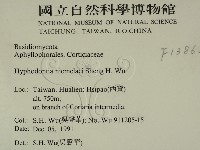 國立自然科學博物館
NATIONAL MUSEUM OF NATURAL SCIENCE
TAICHUNG, TAIWAN, R.O.CHINA
F1386
Basidiomycota
Aphyllophorales, Corticiaceae
Hyphodontia niemelaei Sheng H. Wu
Loc: Taiwan. Hualien: Hsipao(西寶)
alt. 750m,
on branch of Coriaria intermedia
Col: S.H. Wu No: Wu 911205-15
Date: Dec. 05, 1991
Det: S.H. Wu